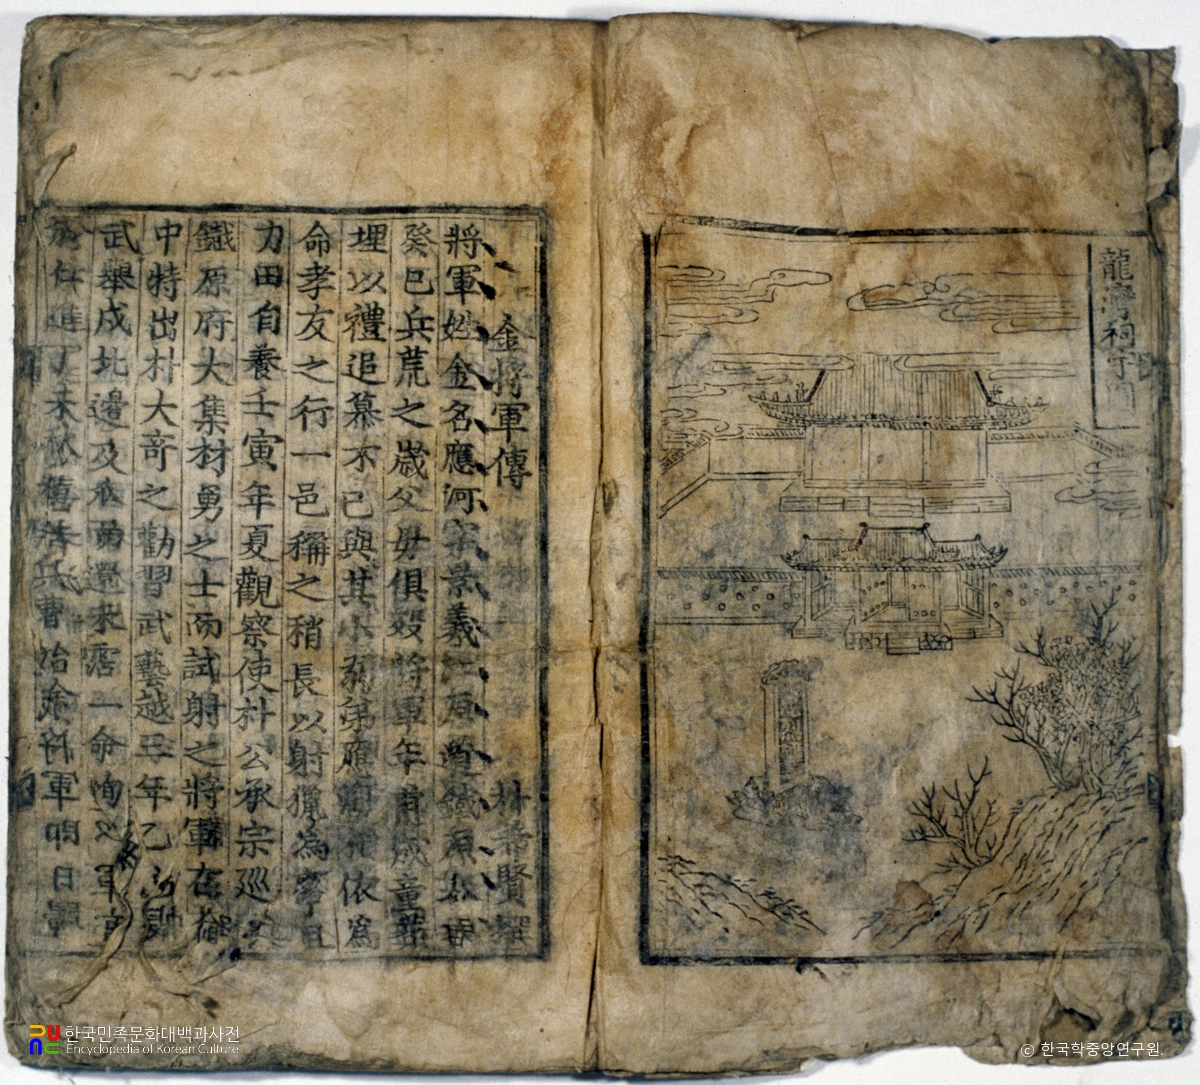 龍灣祠宇圖
金將軍傳 朴希賢撰
將軍姓金名應河字景羲江原道鐵原
癸巳兵荒之歲父母俱歿將軍年甫成童葬
埋以禮追慕不已與其小弱弟應海相依爲
命孝友之行一邑稱之稍長以射獵為事且
力田自養壬寅年夏觀察使朴公承宗巡
鐵原府大集材勇之士而試射之將軍在
中特出朴大奇之勸習武藝越三年乙巳
武擧戍北邊及 而還未霑一命
進丁未秋 兵曹 將軍即日
한국민족문화대백과사전
Encyclopedia of Korean Culture
© 한국학중앙연구원.